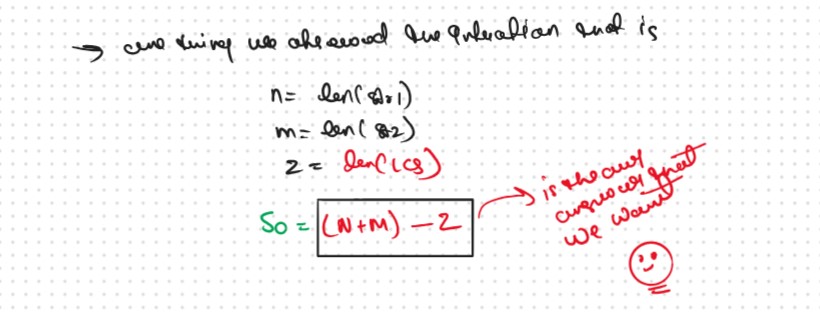 → one thing we observed the intuation that is
n = len(str1)
m = len(str2)
z = len(LCS)
So = (N+M) - z
→ is the our
answer that
we want